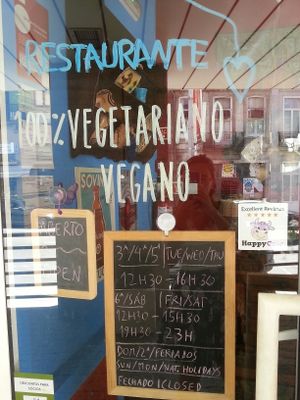 RESTAURANTE
100% VEGETARIANO
VEGANO
SOVI
ABERTO
OPEN
Excellent Reviews
HappyCow
3ª/4ª/5ª TUE/WED/THU
12H30 - 16H30
6ª/SÁB FRI/SAT
12H30 - 15H30
19H30 - 23H
DOM/2ª/FERIADOS
SUN/MON/NAT. HOLIDAYS
FECHADO CLOSED